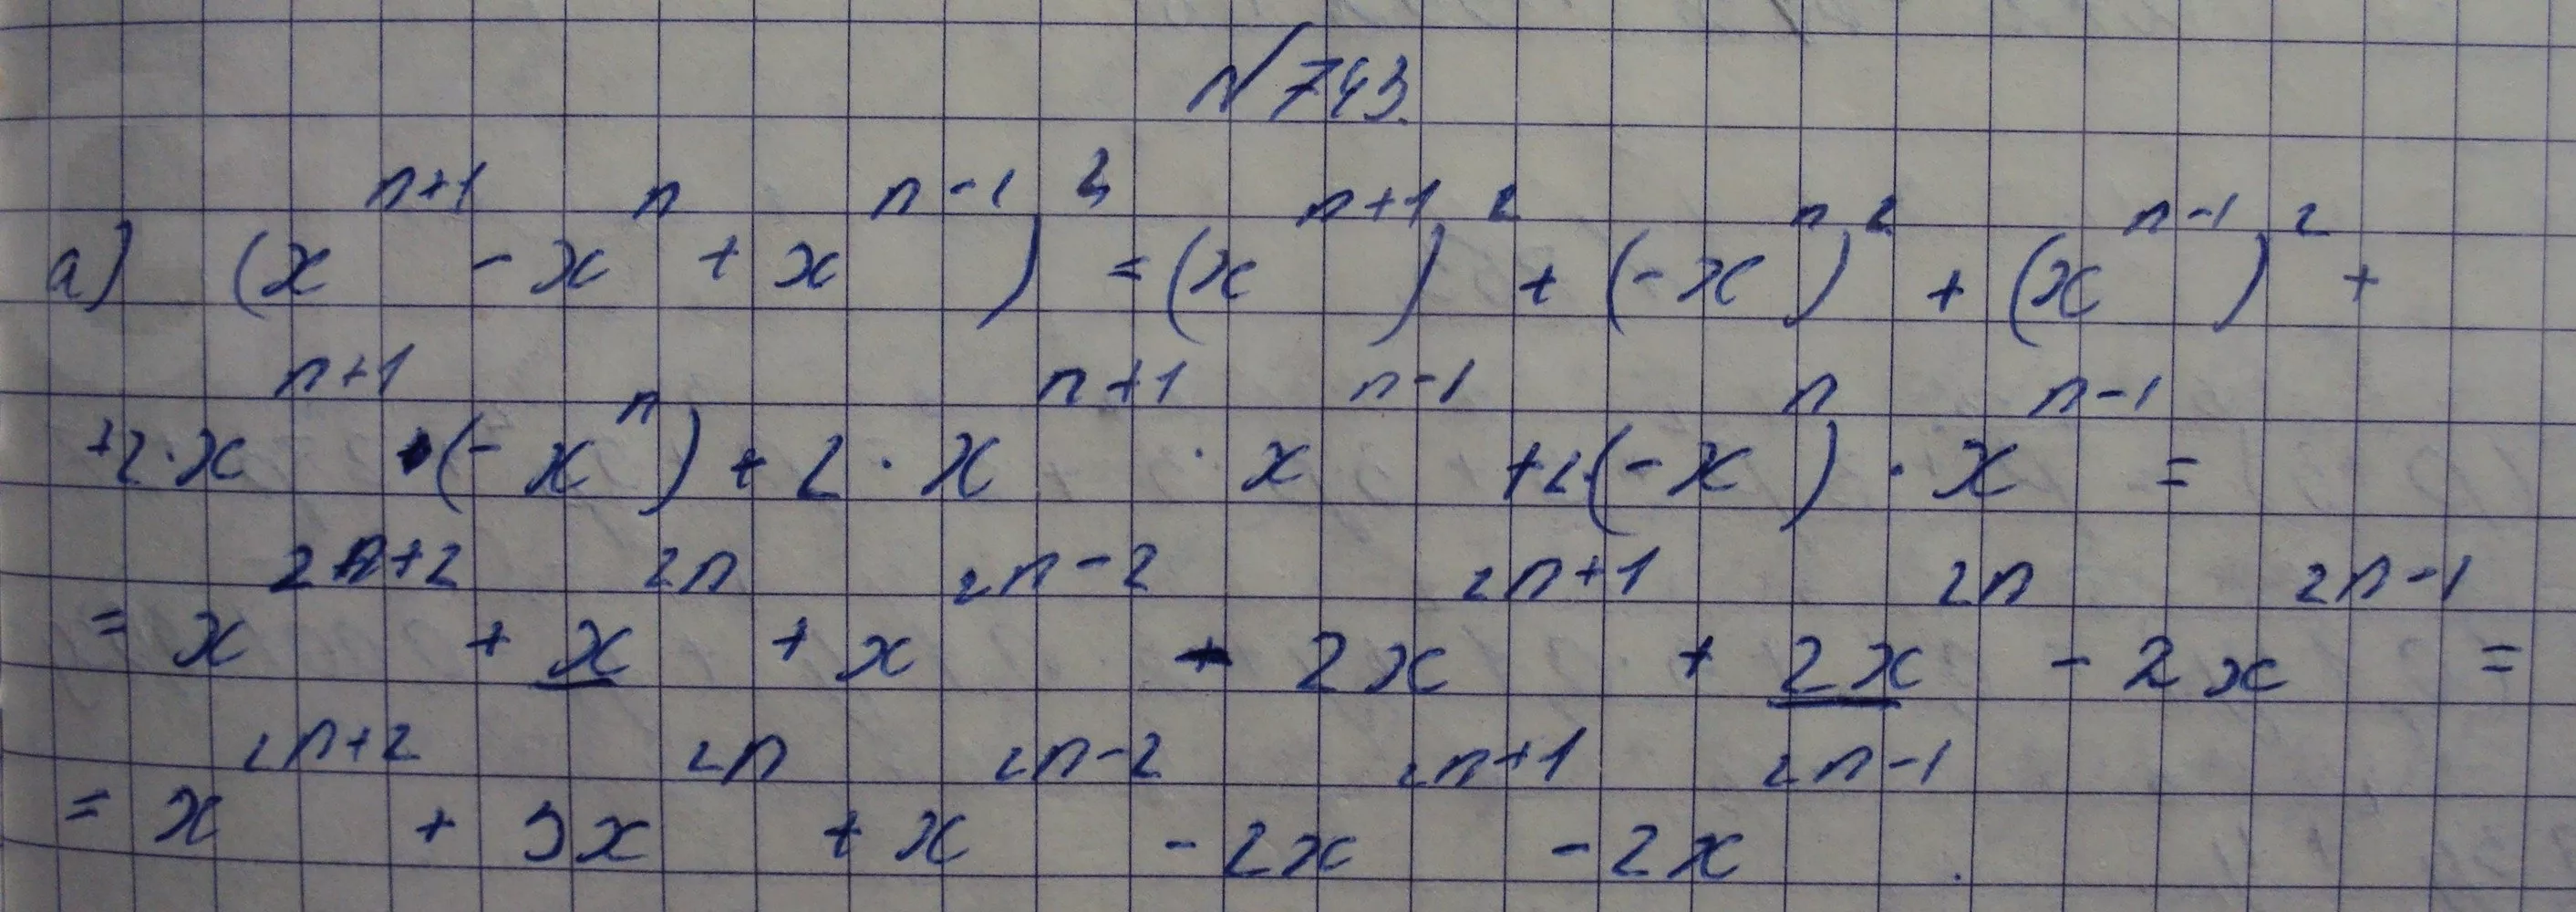 №743.
а) (x^{n+1} - x^n + x^{n-1})^2 = (x^{n+1})^2 + (-x^n)^2 + (x^{n-1})^2 +
+2·x^{n+1}·(-x^n) + 2·x^{n+1}·x^{n-1} + 2·(-x^n)·x^{n-1} =
= x^{2n+2} + x^{2n} + x^{2n-2} - 2x^{2n+1} + 2x^{2n} - 2x^{2n-1} =
= x^{2n+2} + 3x^{2n} + x^{2n-2} - 2x^{2n+1} - 2x^{2n-1}.